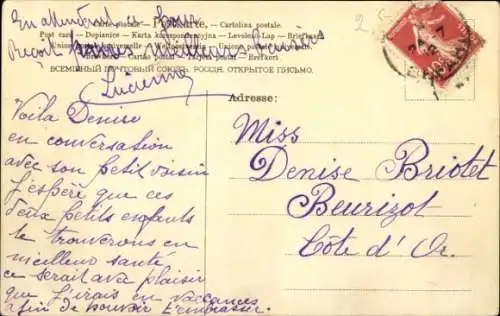 En attendant de bons
Reçoit bonnes meilleurs baisers
Lucienne
Carte postale. — Postkarte. — Cartolina postale.
Post card — Dopisnice — Karta korespondencyjna — Levelező-Lap — Briefkaart
Union postale universelle — Weltpostverein — Unione postale
Brefkort — Cartão postal — Tarjeta postal — Brefkort.
ВСЕМІРНЫЙ ПОЧТОВЫЙ СОЮЗЪ. РОССІЯ. ОТКРЫТОЕ ПИСЬМО.
Adresse:
Voila Denise
en conversation
avec son petit voisin
J'espére que ces
deux petits enfants
te trouverons en
meilleur santé
ce serait avec plaisir
que j'irais en vaccances
afin de pouvoir t'embrasser.
Miss
Denise Briotet
Beurizot
Côte d'Or.